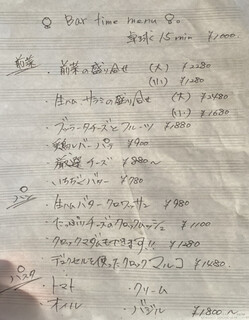 Bar time menu
卓球 15 min ¥1000
前菜
・前菜の盛り合せ (大) ¥2280
(小) ¥1280
・生ハム サラミの盛り合せ (大) ¥2480
(小) ¥1680
・ブッラータチーズとフルーツ ¥1880
レバーパテ ¥900
・厳選チーズ ¥880〜
・いちじくバター ¥780
パン
・生ハムバタークロワッサン ¥980
・たっぷりチーズのクロックムッシュ ¥1100
クロックマダムもできます!! ¥1280
・デュクセルを使ったクロック ¥1480
パスタ
・トマト ・クリーム
・オイル ・バジル ¥1,800〜